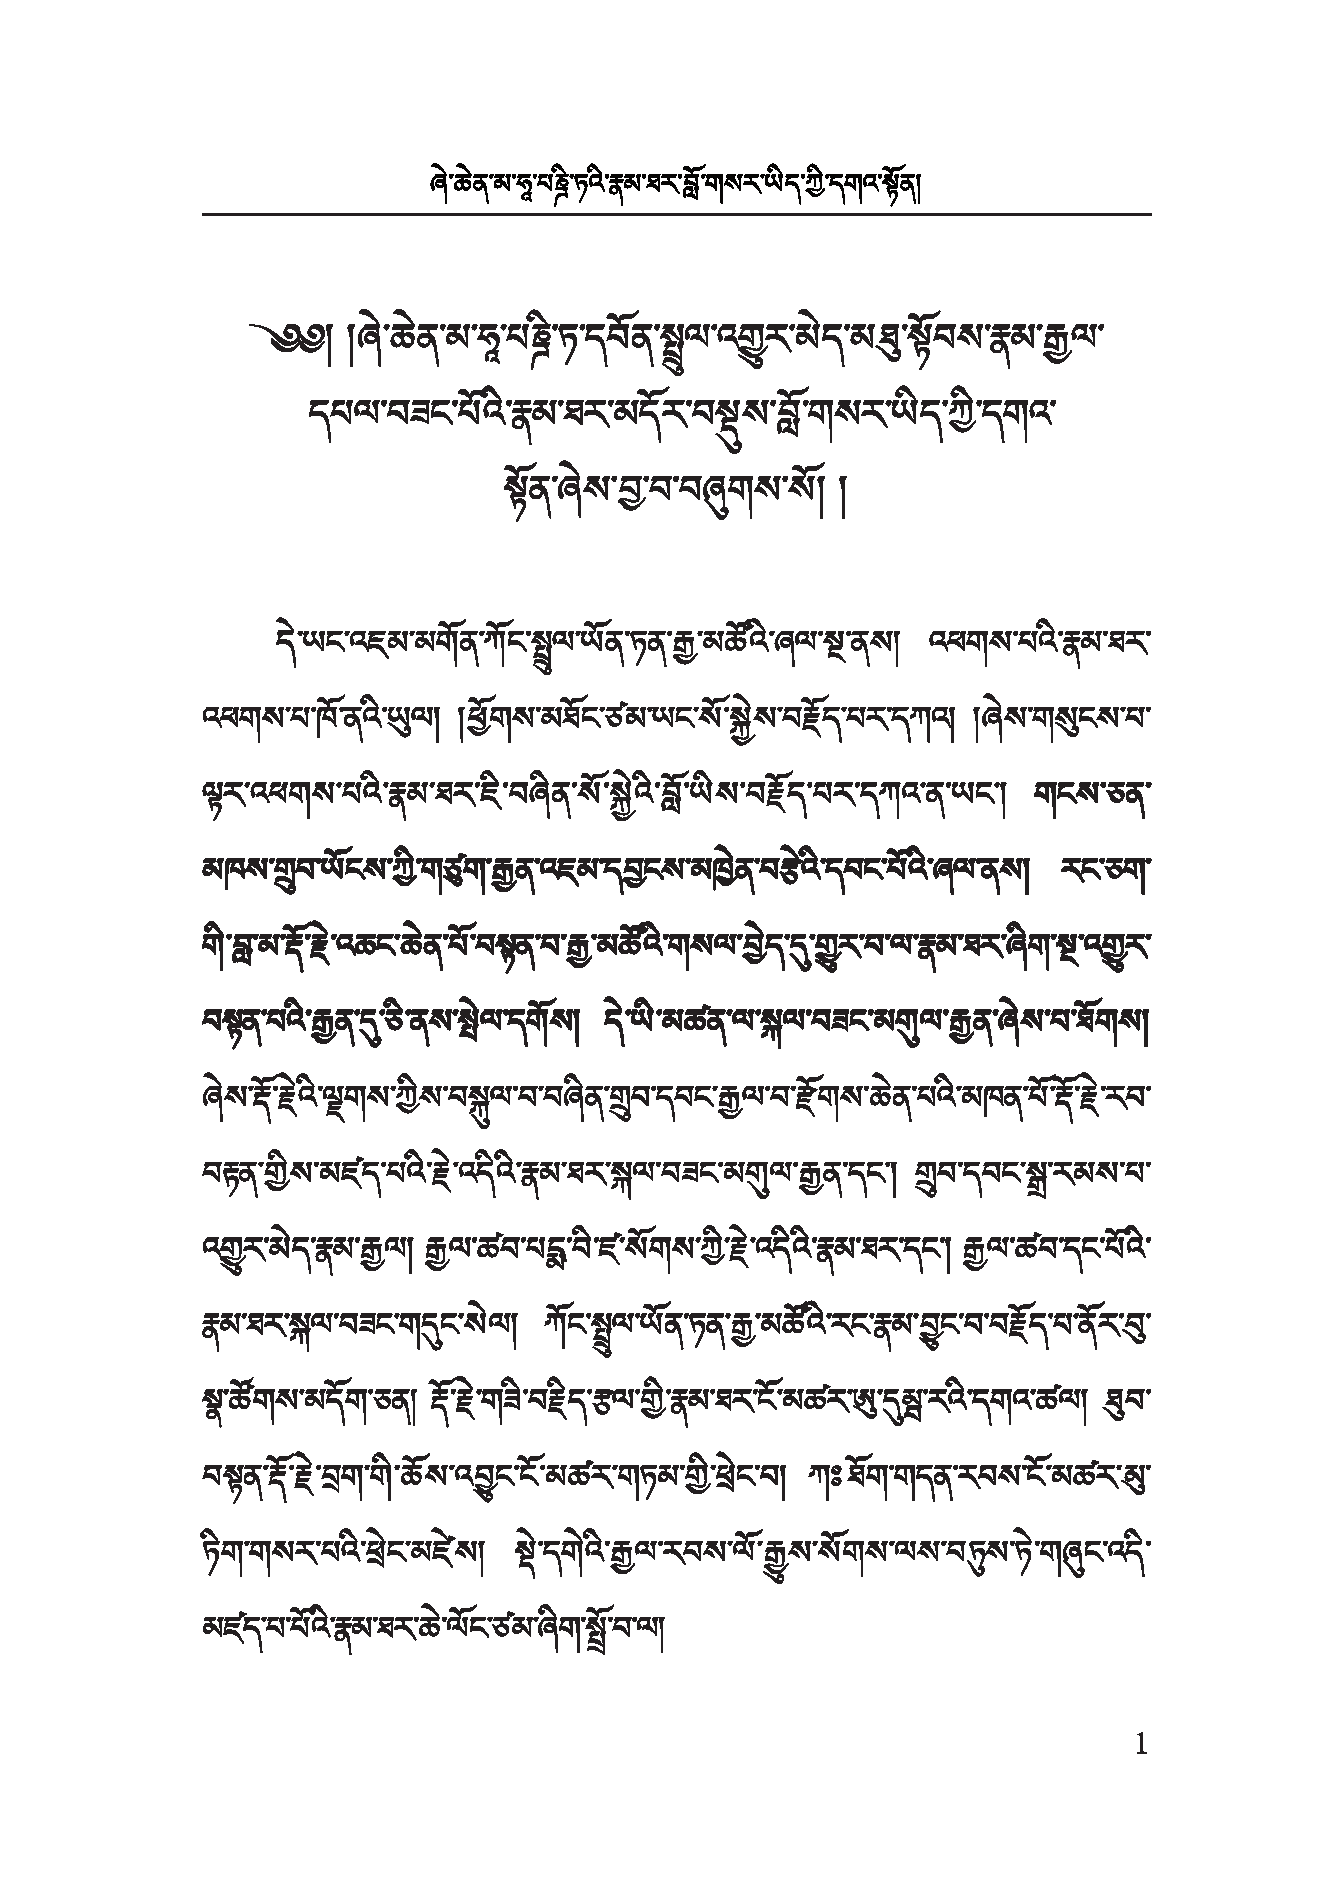 ཞེ་ཆེན་མ་ཧཱ་པཎྜི་ཏའི་རྣམ་ཐར་བློ་གསར་ཡིད་ཀྱི་དགའ་སྟོན།
༄༅། །ཞེ་ཆེན་མ་ཧཱ་པཎྜི་ཏ་དབོན་སྤྲུལ་འགྱུར་མེད་མཐུ་སྟོབས་རྣམ་རྒྱལ་
དཔལ་བཟང་པོའི་རྣམ་ཐར་མདོར་བསྡུས་བློ་གསར་ཡིད་ཀྱི་དགའ་
སྟོན་ཞེས་བྱ་བ་བཞུགས་སོ། །
དེ་ཡང་འཇམ་མགོན་ཀོང་སྤྲུལ་ཡོན་ཏན་རྒྱ་མཚོའི་ཞལ་སྔ་ནས། འཕགས་པའི་རྣམ་ཐར་
འཕགས་པ་ཁོ་ནའི་ཡུལ། །ཕྱོགས་མཐོང་ཙམ་ཡང་སོ་སྐྱེས་བརྗོད་པར་དཀའ། །ཞེས་གསུངས་པ་
ལྟར་འཕགས་པའི་རྣམ་ཐར་ཇི་བཞིན་སོ་སྐྱེའི་བློ་ཡིས་བརྗོད་པར་དཀའ་ན་ཡང་། གངས་ཅན་
མཁས་གྲུབ་ཡོངས་ཀྱི་གཙུག་རྒྱན་འཇམ་དབྱངས་མཁྱེན་བརྩེའི་དབང་པོའི་ཞལ་ནས། རང་ཅག་
གི་བླ་མ་རྡོ་རྗེ་འཆང་ཆེན་པོ་བསྟན་པ་རྒྱ་མཚོའི་གསལ་བྱེད་དུ་གྱུར་པ་ལ་རྣམ་ཐར་ཞིག་སྔ་འགྱུར་
བསྟན་པའི་རྒྱན་དུ་ཅི་ནས་སྤེལ་དགོས། དེ་ཡི་མཚན་ལ་སྐལ་བཟང་མགུལ་རྒྱན་ཞེས་པ་ཐོགས།
ཞེས་རྡོ་རྗེའི་ལྗགས་ཀྱིས་བསྐུལ་བ་བཞིན་གྲུབ་དབང་རྒྱལ་བ་རྫོགས་ཆེན་པའི་མཁན་པོ་རྡོ་རྗེ་རབ་
བརྟན་གྱིས་མཛད་པའི་རྗེ་འདིའི་རྣམ་ཐར་སྐལ་བཟང་མགུལ་རྒྱན་དང་། གྲུབ་དབང་སྒྲ་རམས་པ་
འགྱུར་མེད་རྣམ་རྒྱལ། རྒྱལ་ཚབ་པདྨ་བི་ཛ་སོགས་ཀྱི་རྗེ་འདིའི་རྣམ་ཐར་དང་། རྒྱལ་ཚབ་དང་པོའི་
རྣམ་ཐར་སྐལ་བཟང་གདུང་སེལ། ཀོང་སྤྲུལ་ཡོན་ཏན་རྒྱ་མཚོའི་རང་རྣམ་བྱུང་བ་བརྗོད་པ་ནོར་བུ་
སྣ་ཚོགས་མདོག་ཅན། རྡོ་རྗེ་གཟི་བརྗིད་རྩལ་གྱི་རྣམ་ཐར་ངོ་མཚར་ཨུ་དུམྦ་རའི་དགའ་ཚལ། ཐུབ་
བསྟན་རྡོ་རྗེ་བྲག་གི་ཆོས་འབྱུང་ངོ་མཚར་གཏམ་གྱི་ཕྲེང་བ། ཀཿཐོག་གདན་རབས་ངོ་མཚར་མུ་
ཏིག་གསར་པའི་ཕྲེང་མཛེས། སྡེ་དགེའི་རྒྱལ་རབས་ལོ་རྒྱུས་སོགས་ལས་བཏུས་ཏེ་གཞུང་འདི་
མཛད་པ་པོའི་རྣམ་ཐར་ཆེ་ལོང་ཙམ་ཞིག་སྤྲོ་བ་ལ།
1